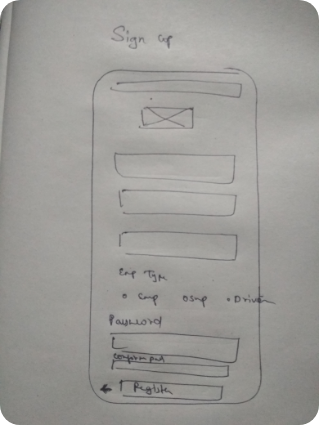 Sign up
Emp Type
Emp Sup Driver
Password
Confirm pwd
Register